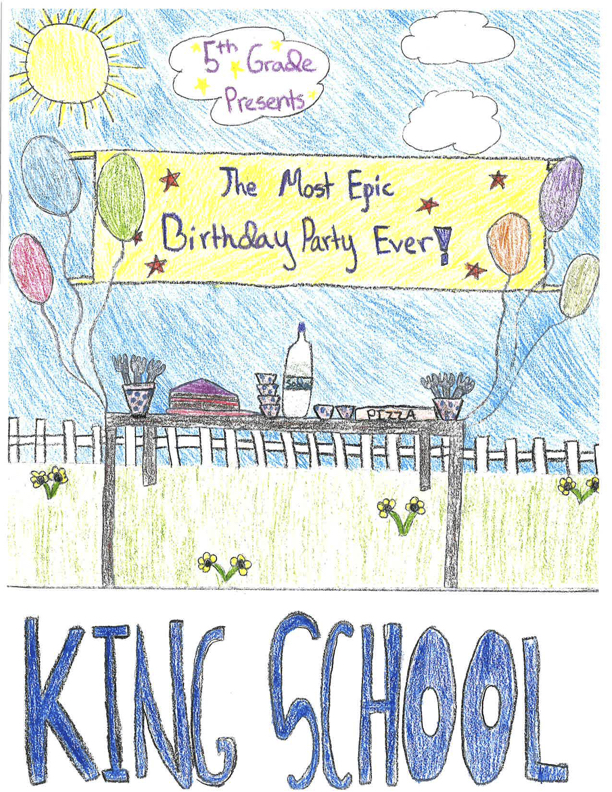 5th Grade
Presents
The Most Epic
Birthday Party Ever!
Soda
PIZZA
KING SCHOOL